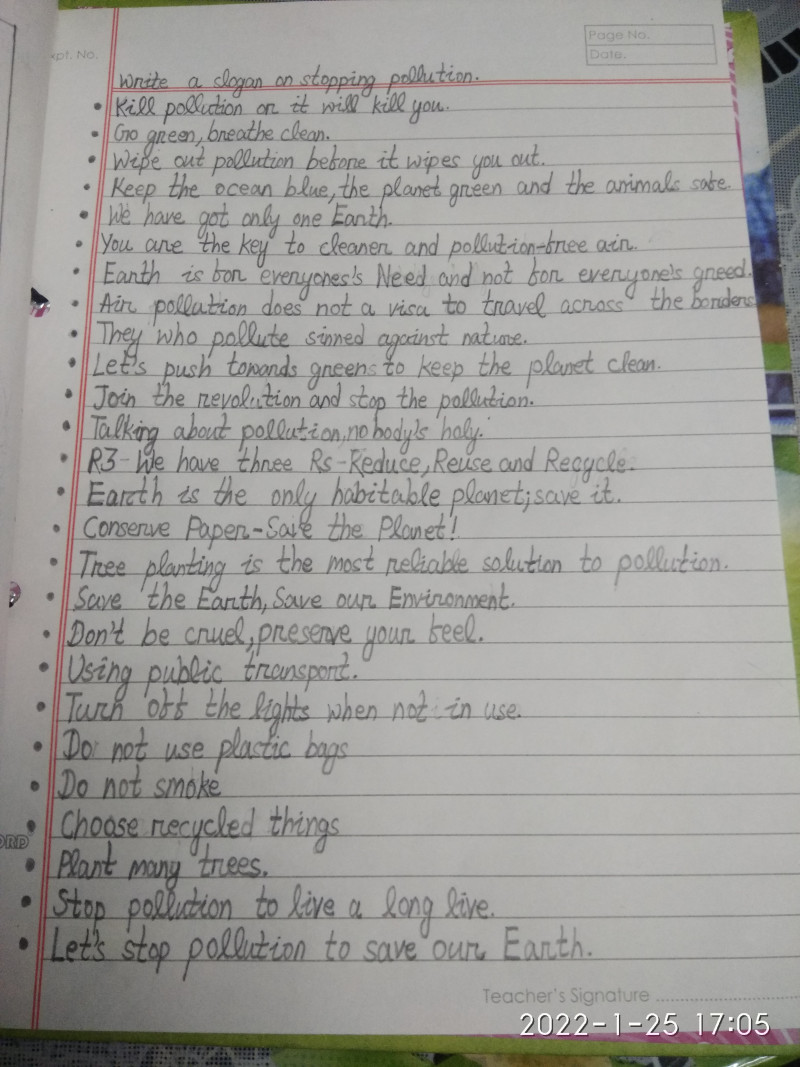 Expt. No.
Page No.
Date.
Write a slogan on stopping pollution.
• Kill pollution or it will kill you.
• Go green, breathe clean.
• Wipe out pollution before it wipes you out.
• Keep the ocean blue, the planet green and the animals safe.
• We have got only one Earth.
• You are the key to cleaner and pollution-free air.
• Earth is for everyones's Need and not for everyone's greed.
• Air pollution does not a visa to travel across the borders
• They who pollute sinned against nature.
• Let's push towards greens to keep the planet clean.
• Join the revolution and stop the pollution.
• Talking about pollution, nobody's holy.
• R3-We have three Rs-Reduce, Reuse and Recycle.
• Earth is the only habitable planet; save it.
• Conserve Paper-Save the Planet!
• Tree planting is the most reliable solution to pollution.
• Save the Earth, Save our Environment.
• Don't be cruel, preserve your feel.
• Using public transport.
• Turn off the lights when not in use.
• Do not use plastic bags
• Do not smoke
• Choose recycled things
• Plant many trees.
• Stop pollution to live a long live.
• Let's stop pollution to save our Earth.
Teacher's Signature
2022-1-25 17:05